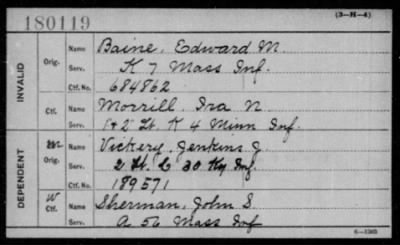 180119
(3-H-4)
INVALID
Orig.
Name Baine, Edward M.
Serv. K 7 Mass Inf.
Ctf. No. 684862
Ctf.
Name Morrill, Ira N.
Serv. 1st & 2 Lt. K 4 Minn Inf.
DEPENDENT
M
Orig.
Name Vickery, Jenkins J.
Serv. 2 Lt. C 30 Ky Inf.
Ctf. No. 189571
W
Ctf.
Name Sherman, John S.
Serv. A 56 Mass Inf